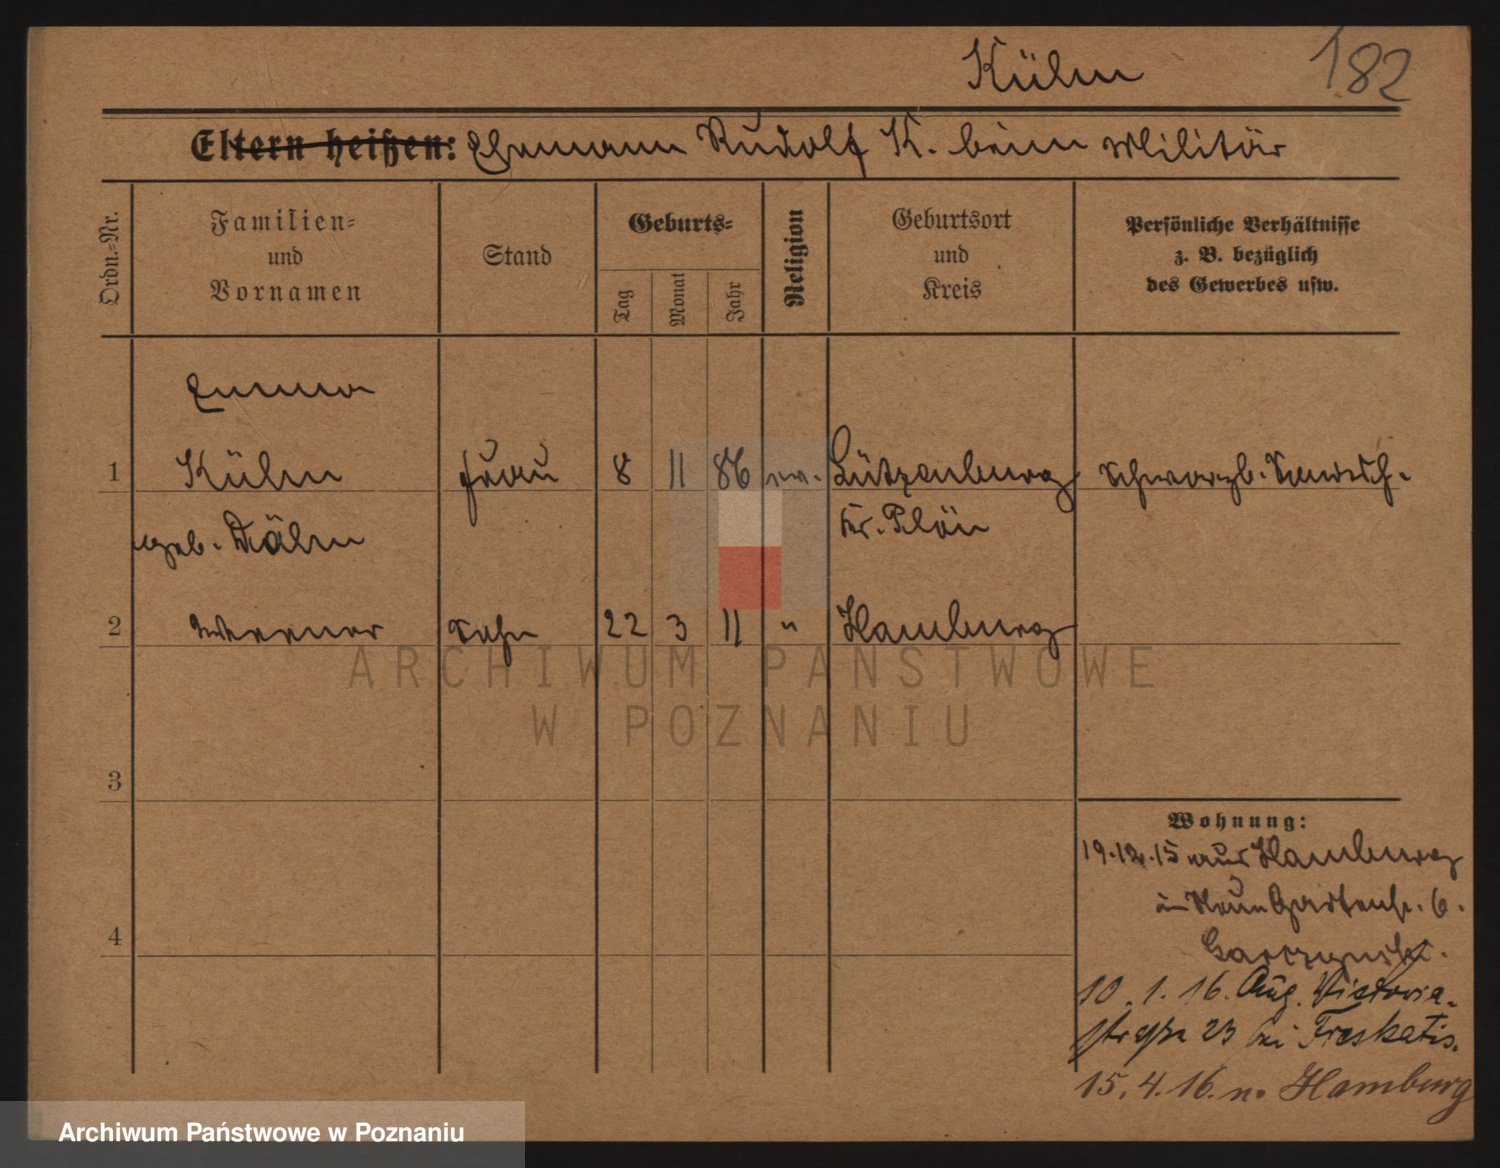 Külm 182
Eltern heißen: Ehemann Rudolf K. beim Militär
Ordn.=Nr.
Familien=
und
Vornamen
Stand
Geburts=
Tag
Monat
Jahr
Religion
Geburtsort
und
Kreis
Persönliche Verhältnisse
z. B. bezüglich
des Gewerbes usw.
Emma
1 Külm Frau 8 11 86 ev. Lützenburg
geb. Kr. Plön
2 Werner Sohn 22 3 11 " Hamburg
3
4
Wohnung:
19.12.15 aus Hamburg
Gartenstr. 6.
10.1.16. Aug. Victoria-
straße 23 bei Freskatis.
15.4.16. n. Hamburg
ARCHIWUM PAŃSTWOWE
W POZNANIU
Archiwum Państwowe w Poznaniu